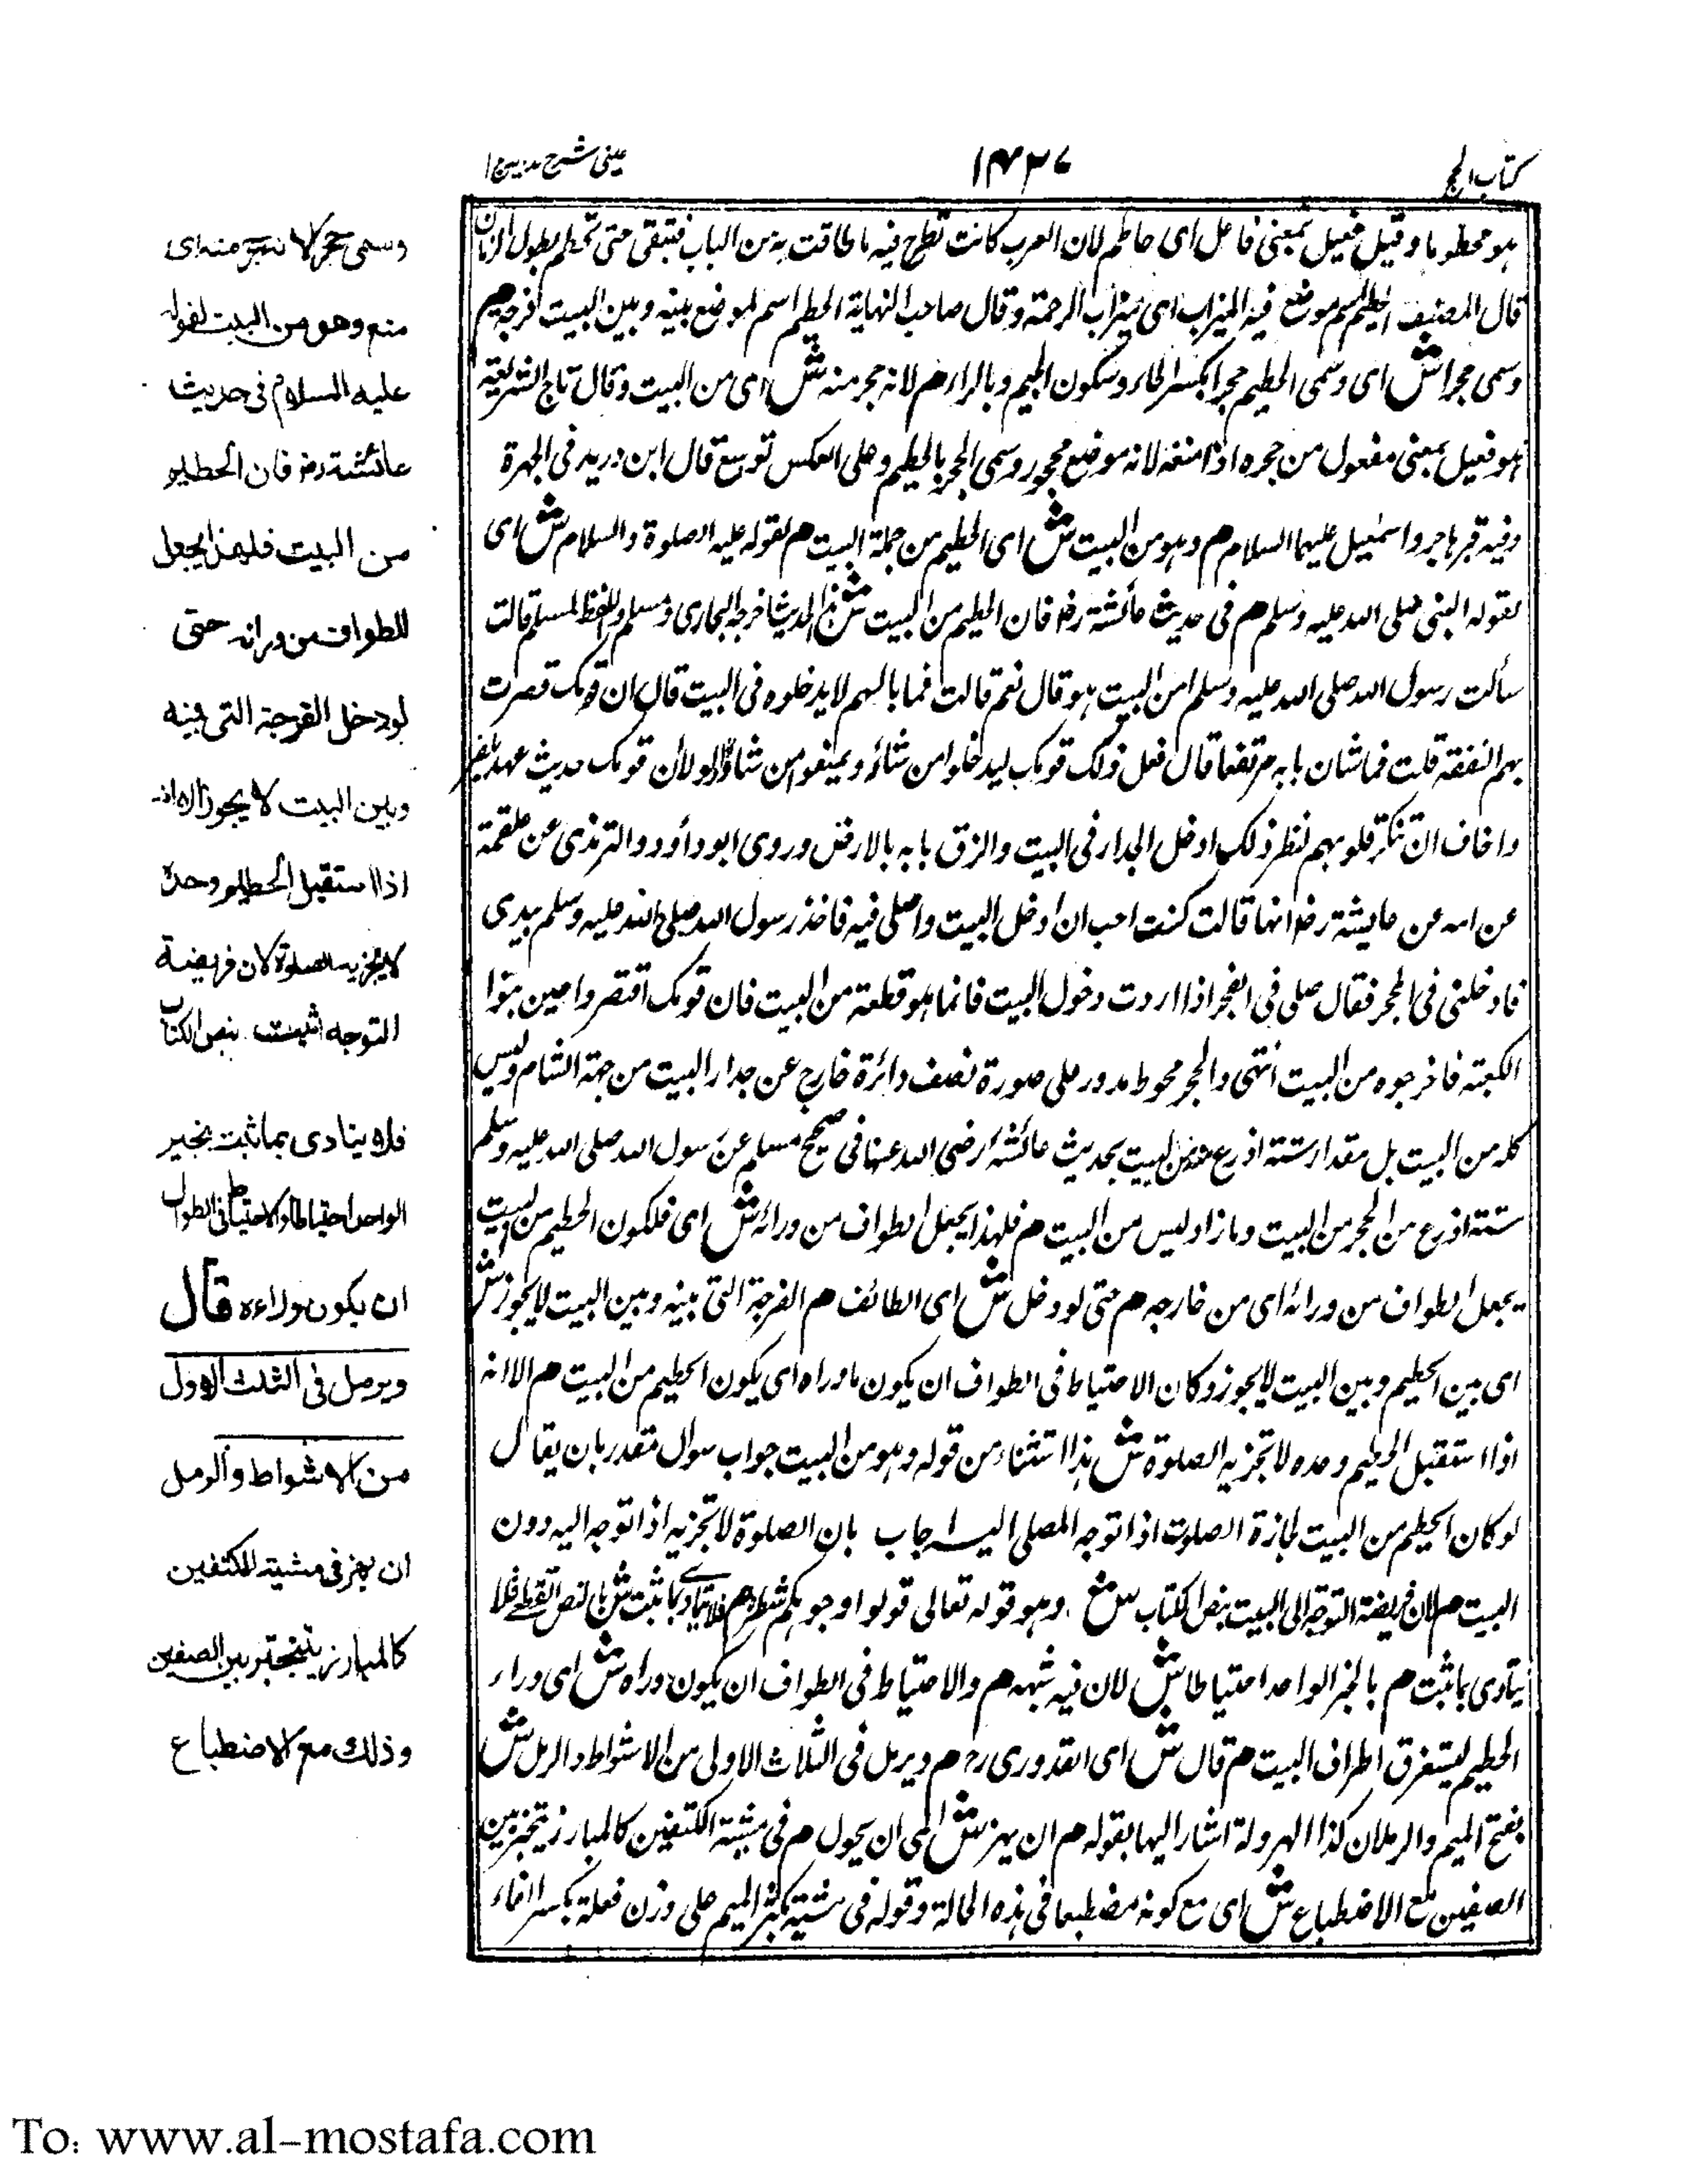 كتاب الحج
١٤٣٧
عينى شرح هداية ج ١
هو محطوما وقيل فعيل بمعنى فاعل اى حاطم لان العرب كانت تطرح فيه ما طافت به من الثياب فتبقى حتى تحطم بطول الزمان
قال المصنف الحطيم اسم موضع فيه الميزاب اى ميزاب الرحمة وقال صاحب النهاية الحطيم اسم لموضع بينه وبين البيت فرجة م
وسمى حجرا ش اى وسمى الحطيم حجرا بكسر الحاء وسكون الجيم وبالراء م لانه حجر منه ش اى من البيت وقال تاج الشريعة
هو فعيل بمعنى مفعول من حجره اذا منعه لانه موضع محجور وسمى الحجر بالحطيم وعلى العكس توسع قال ابن دريد فى الجمهرة
وفيه قبر هاجر واسمعيل عليهما السلام م وهو من البيت ش اى الحطيم من جملة البيت م لقوله عليه الصلوة والسلام ش اى
لقوله النبى صلى الله عليه وسلم م فى حديث عائشة رض فان الحطيم من البيت ش هذا الحديث اخرجه البخارى ومسلم واللفظ لمسلم قالت
سألت رسول الله صلى الله عليه وسلم امن البيت هو قال نعم قالت فما بالهم لا يدخلوه فى البيت قال ان قومك قصرت
بهم النفقة قلت فما شان بابه مرتفعا قال فعل ذلك قومك ليدخلوا من شاؤ ويمنعوا من شاؤا ولولا أن قومك حديث عهد بكفر
واخاف ان تنكر قلوبهم لنظر ذلك ادخل الجدار فى البيت والزق بابه بالارض وروى ابو داؤد والترمذى عن علقمة
عن امه عن عايشة رض انها قالت كنت احب ان ادخل البيت واصلى فيه فاخذ رسول الله صلى الله عليه وسلم بيدى
فادخلنى فى الحجر فقال صلى فى الحجر اذا اردت دخول البيت فانما هو قطعة من البيت فان قومك اقتصروا حين بنوا
الكعبة فاخرجوه من البيت انتهى والحجر محوط مدور على صورة نصف دائرة خارج عن جدار البيت من جهة الشام وليس
كله من البيت بل مقدار ستة اذرع منه من البيت بحديث عائشة رضى الله عنها فى صحيح مسلم عن رسول الله صلى الله عليه وسلم
ستة اذرع من الحجر من البيت وما زاد ليس من البيت م فلهذا يجعل الطواف من ورائه ش اى فلكون الحطيم من البيت
يجعل الطواف من ورائه اى من خارجه م حتى لو دخل ش اى الطائف م الفرجة التى بينه وبين البيت لا يجوز ش
اى بين الحطيم وبين البيت لا يجوز وكان الاحتياط فى الطواف ان يكون ماوراه اى يكون الحطيم من البيت م الا انه
اذا استقبل الحطيم وحده لا تجزيه الصلوة ش هذا استثناء من قوله وهو من البيت جواب سوال مقدر بان يقال
لو كان الحطيم من البيت لجازة الصلوت اذا توجه المصلى اليه اجاب بان الصلوة لا تجزيه اذا توجه اليه دون
البيت م لان فريضة التوجه الى البيت بنص الكتاب ش وهو قوله تعالى فولوا وجوهكم شطره م فلا يتادى بما ثبت ش بالنص القطعى فلا
يتادى بما ثبت م بالخبر الواحد احتياطا ش لان فيه شبهه م والاحتياط فى الطواف ان يكون وراه ش اى وراء
الحطيم ليستغرق اطراف البيت م قال ش اى القدورى رح م ويرمل فى الثلاث الاولى من الاشواط والرمل ش
بفتح الميم والرملان كذا الهرولة اشار اليها بقوله م ان يهز ش اى ان يحول م فى مشيته الكتفين كالمبارز يتبختر بين
الصفين مع الاضطباع ش اى مع كونه مضطبعا فى هذه الحالة وقوله فى مشيته بكسر الميم على وزن فعلة بكسر الفاء
وسمى حجرا لانه حجر منه اى
منع وهو من البيت لقوله
عليه السلام فى حديث
عائشة رض فان الحطيم
من البيت فلهذا يجعل
للطواف من ورائه حتى
لو دخل الفرجة التى بينه
وبين البيت لا يجوز الا انه
اذا استقبل الحطيم وحده
لا يجزيه الصلوة لان فريضة
التوجه اثبتت بنص الكتاب
فلا يتادى بما ثبت بخبر
الواحد احتياطا والاحتياط فى الطواف
ان يكون وراءه قال
ويرمل فى الثلث الاول
من الاشواط والرمل
ان يهز فى مشيته الكتفين
كالمبارز يتبختر بين الصفين
وذلك مع الاضطباع
To: www.al-mostafa.com